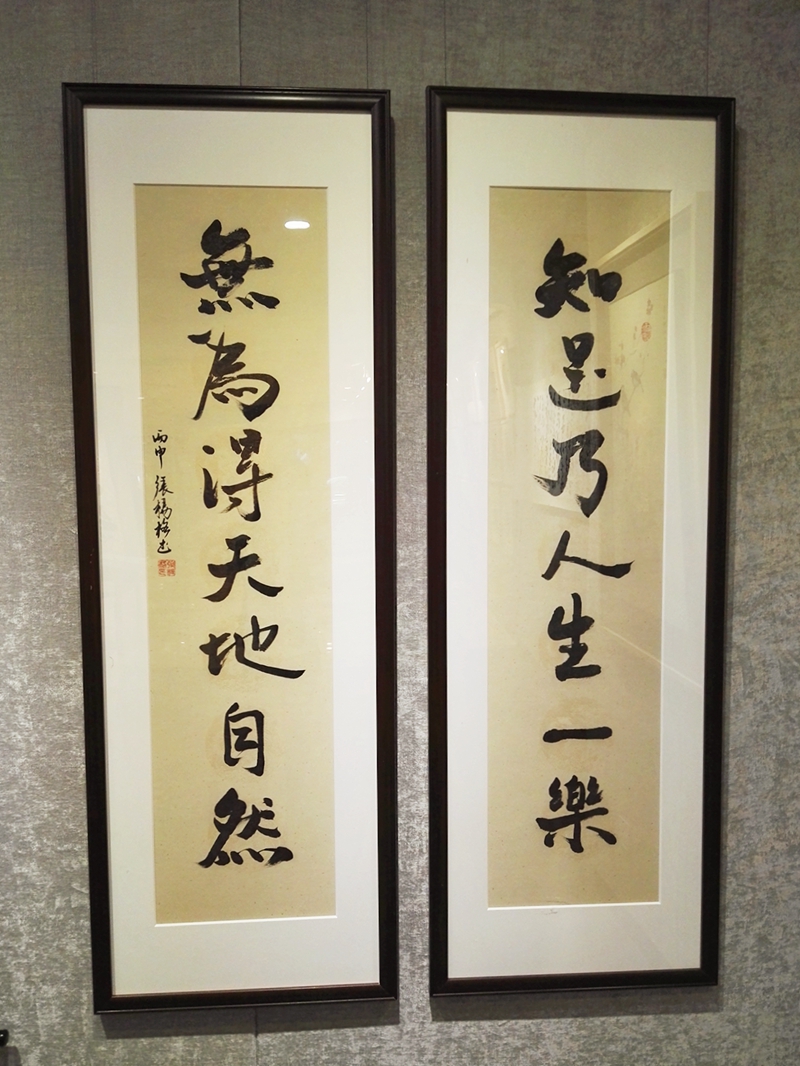 知足乃人生一樂
無為得天地自然
丙申 張楊松書